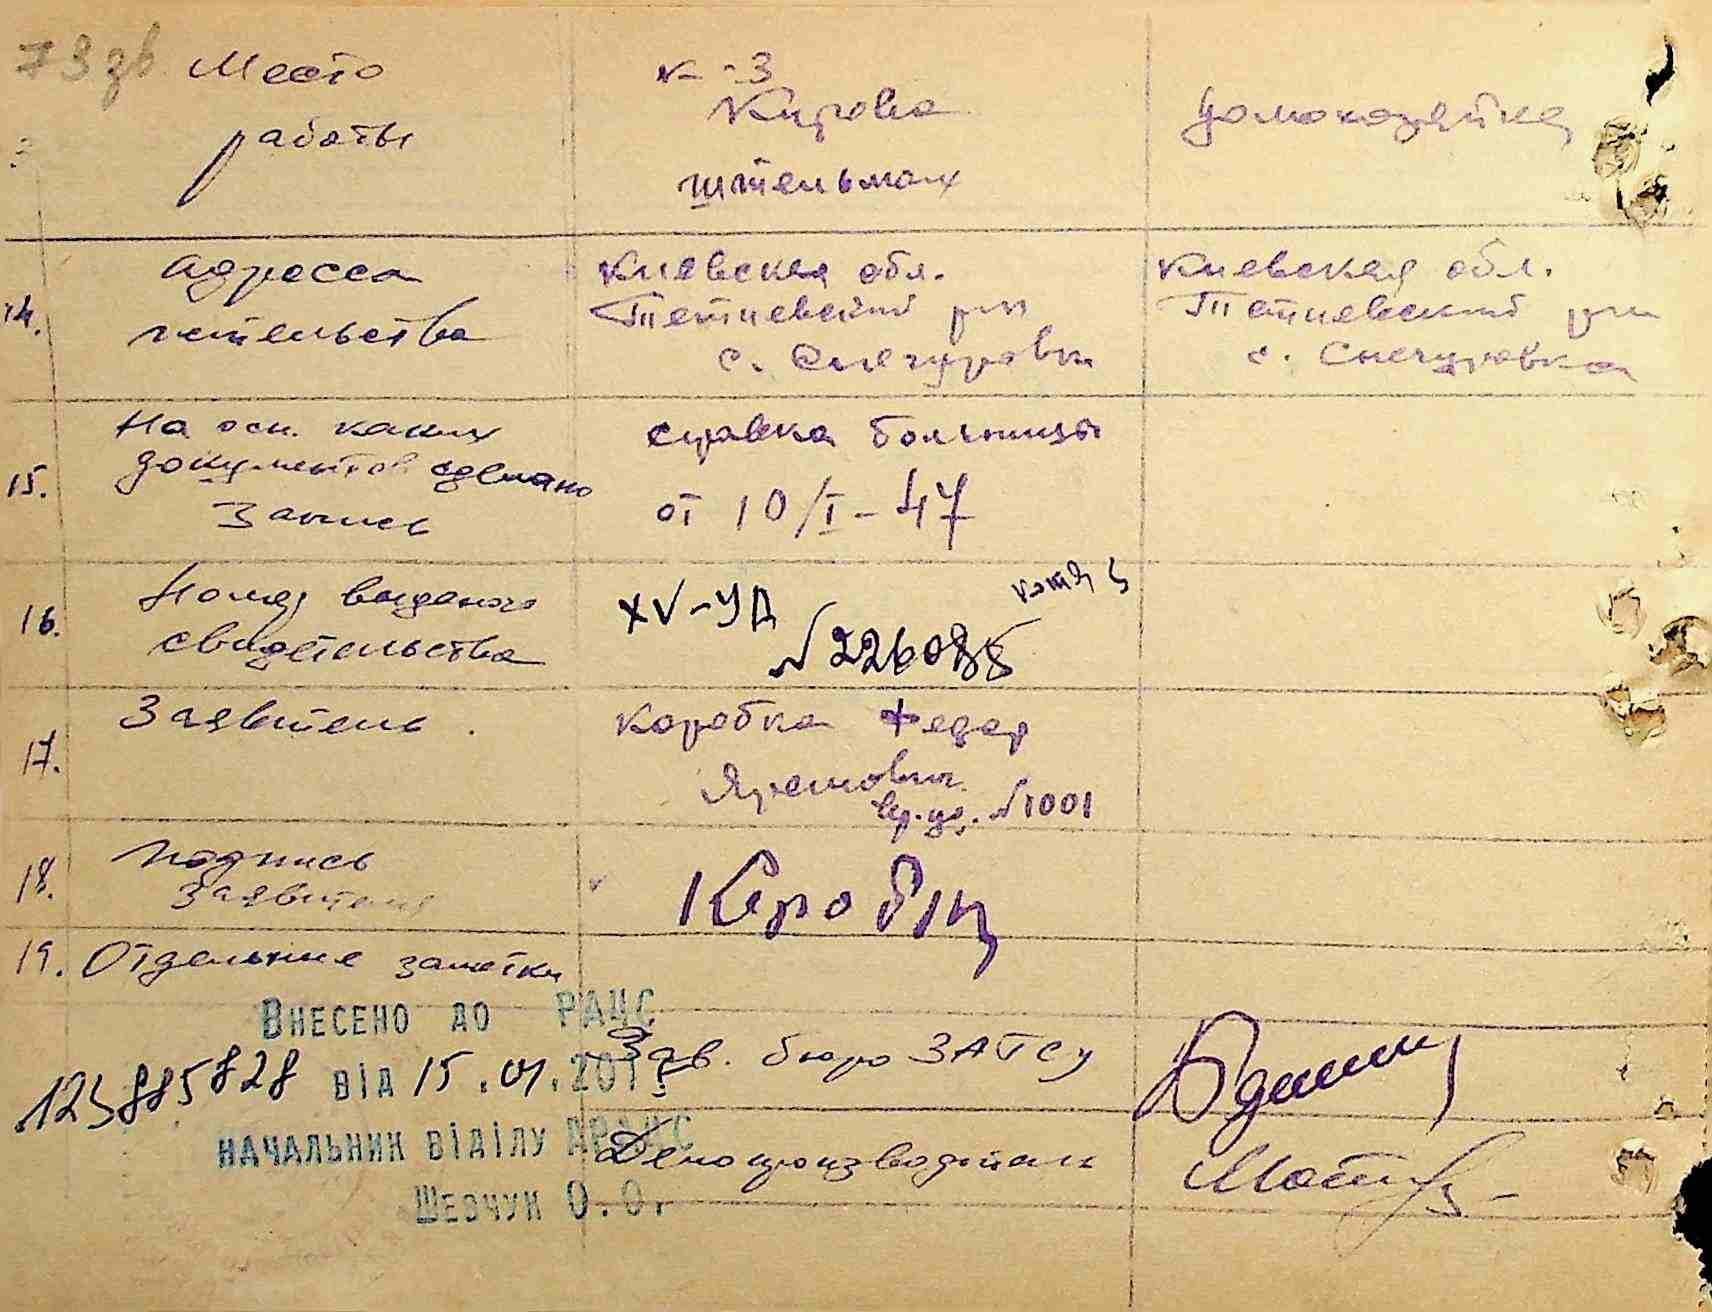 73 зв. Место работы
к-з Кирова
штельмах
домохозяйка
14.
адресса
жительства
Киевская обл.
Тетиевский р-н
с. Снегуровка
Киевская обл.
Тетиевский р-н
с. Снегуровка
15.
На осн. каких
документов сделано
запись
справка больницы
от 10/I-47
16.
Номер выданого
свидетельства
XV-УД
№ 226088
17.
Заявитель.
Коробка Федор
Яремович
№ 1001
18.
подпись
заявителя
Коробка
19. Отдельние заметки
Внесено до РАЦС
від 15.01.201
начальник відділу ДРАЦС
Шевчук О.О.
Зав. бюро ЗАГСу
Делопроизводитель